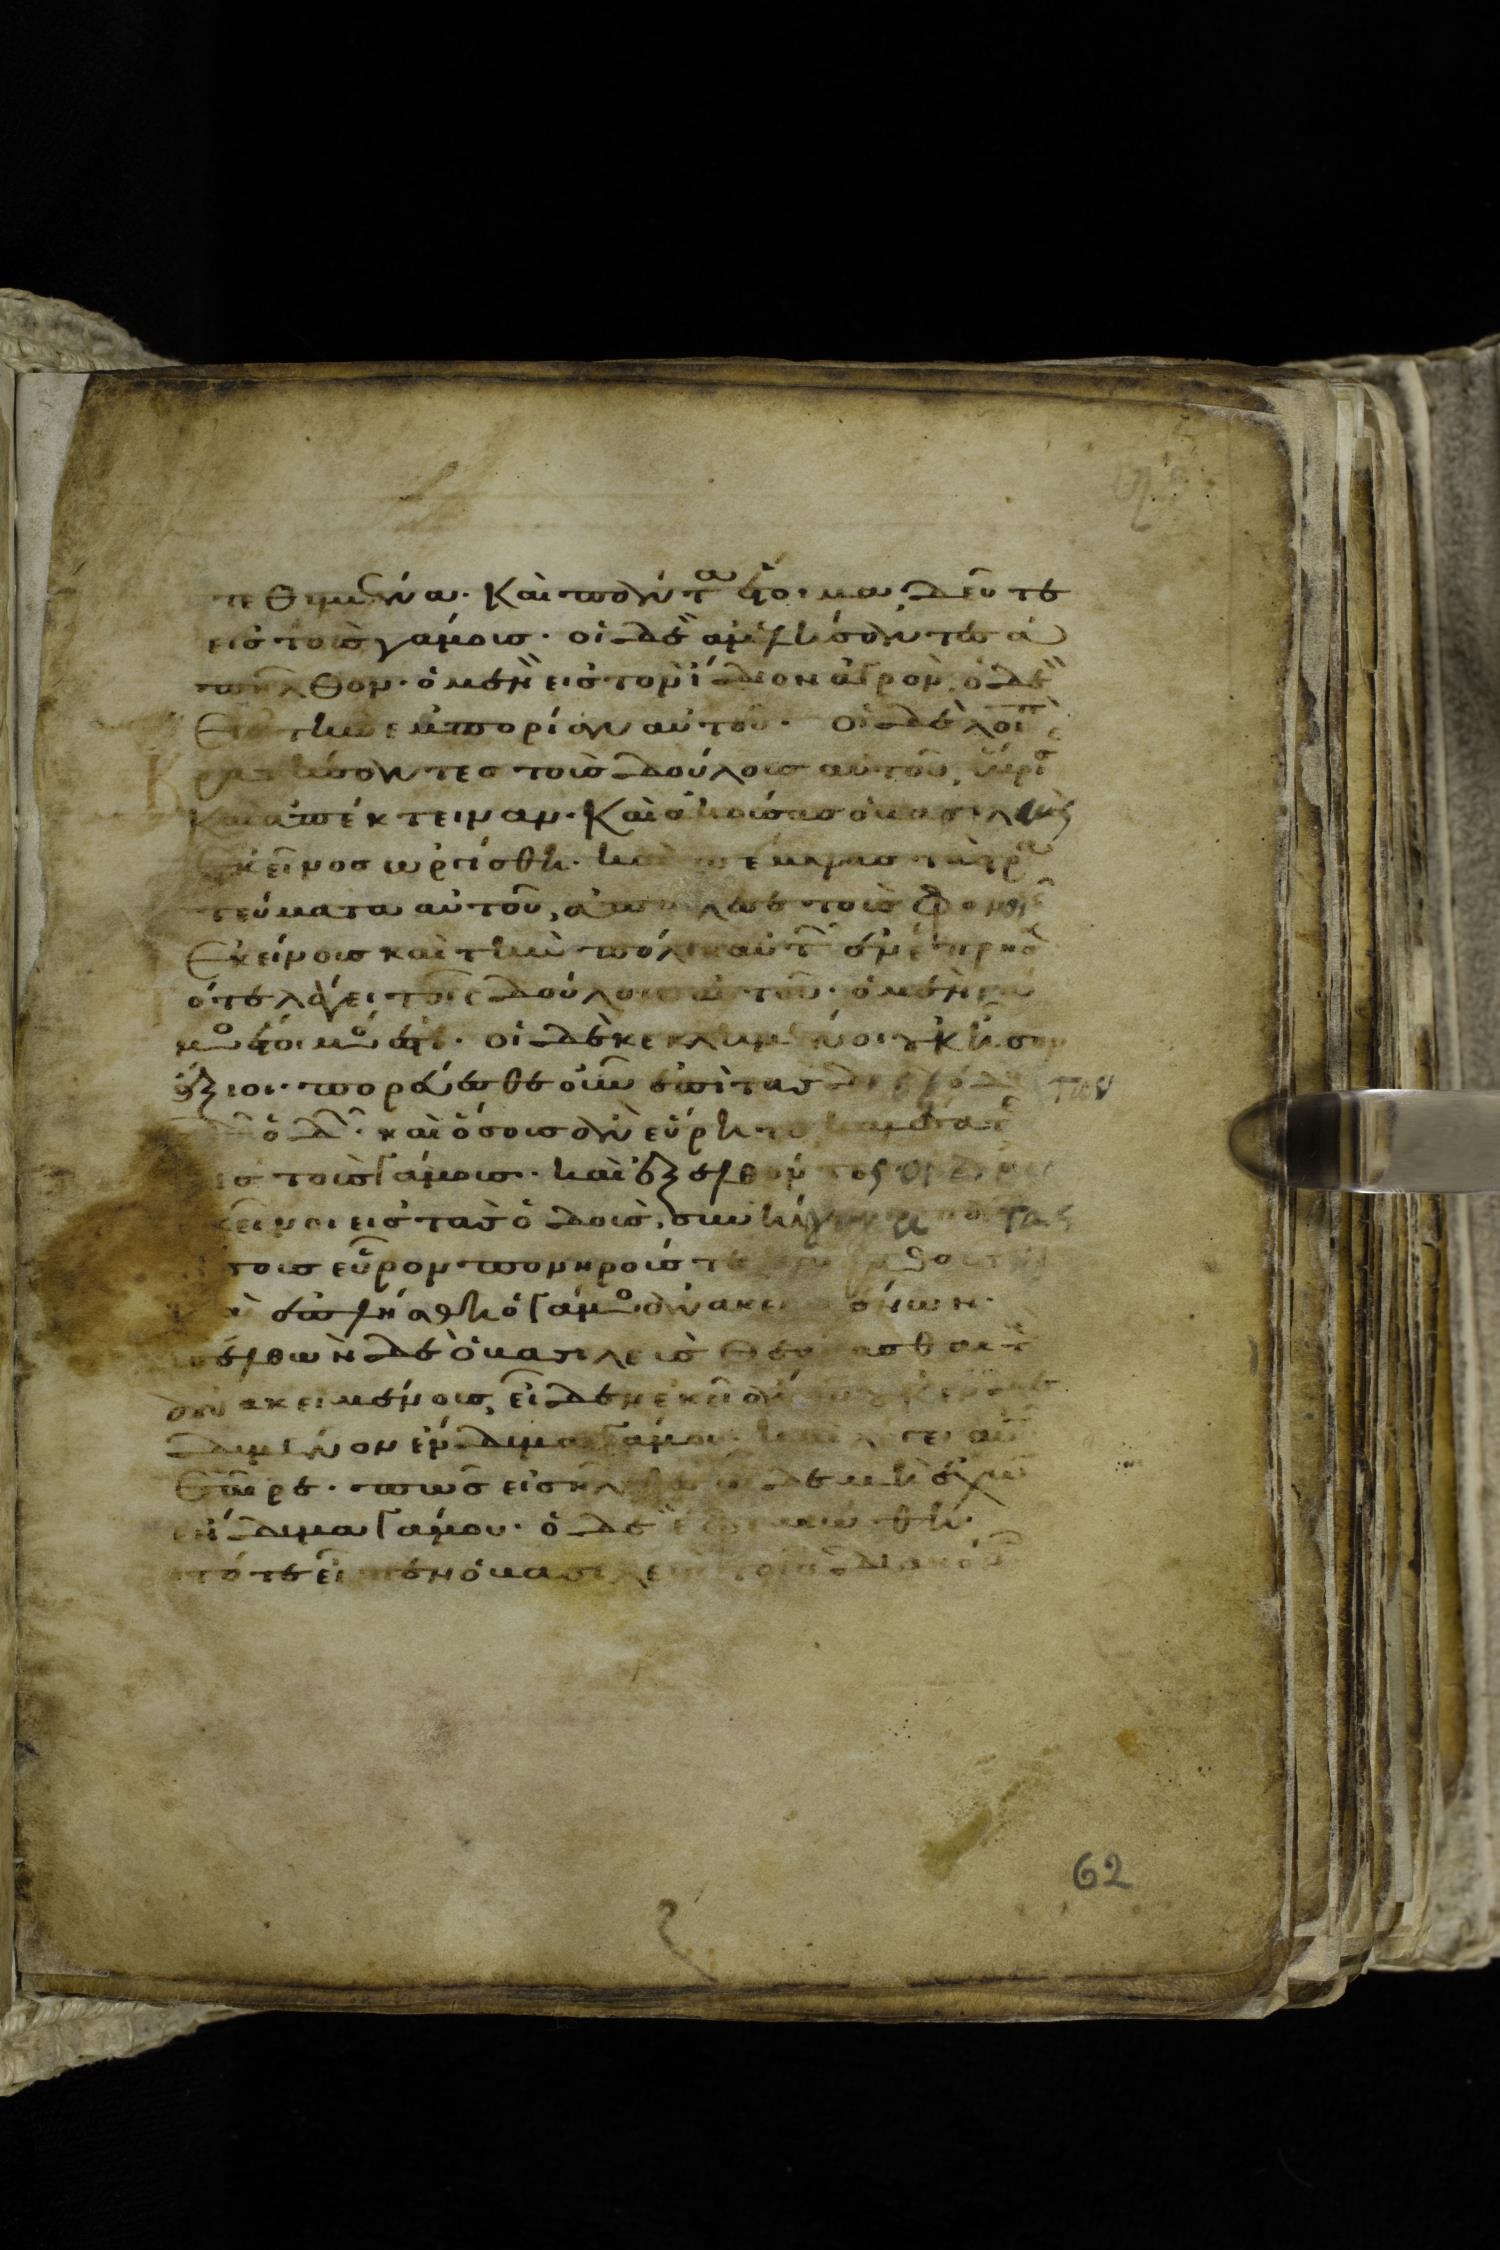 τεθυμένα· Καὶ πάντα ἕτοιμα, δεῦτε
εἰς τοὺς γάμους· οἱ δὲ ἀμελήσαντες ἀ
πῆλθον· ὁ μὲν εἰς τὸν ἴδιον ἀγρὸν, ὁ δὲ
εἰς τὴν ἐμπορίαν αὐτοῦ· Οἱ δὲ λοιπ
κρατήσαντες τοὺς δούλους αὐτοῦ, ὕβρι
καὶ ἀπέκτειναν· Καὶ ἀκούσας ὁ βασιλεὺς
ἐκεῖνος ὠργίσθη· καὶ πέμψας τὰ στρα
τεύματα αὐτοῦ, ἀπώλεσε τοὺς φονεῖς
ἐκείνους καὶ τὴν πόλιν αὐτ ἐνέπρησ
τότε λέγει τοῖς δούλοις αὐτοῦ· ὁ μὲν γά
μος ἕτοιμος ἐστι· οἱ δὲ κεκλημένοι οὐκ ἦσαν
ἄξιοι· πορεύεσθε οὖν ἐπὶ τὰς διεξόδους
τῶν ὁδ· καὶ ὅσους ἂν εὕρητε καλέσατε
εἰς τοὺς γάμους· καὶ ἐξελθόντες οἱ δοῦλοι
ἐκεῖνοι εἰς τὰς ὁδοὺς, συνήγαγον πάντας
ὅσους εὗρον πονηρούς τε καὶ ἀγαθούς
καὶ ἐπλήσθη ὁ γάμος ἀνακειμένων·
εἰσελθὼν δὲ ὁ βασιλεὺς θεάσασθαι τ
ἀνακειμένους, εἶδεν ἐκεῖ ἄνον οὐκ ἐνδεδυ
δυμένον ἔνδυμα γάμου· καὶ λέγει αὐτῶ
ἑταῖρε· πῶς εἰσῆλθες ὧδε μὴ ἔχων
ἔνδυμα γάμου· ὁ δὲ ἐφιμώθη·
τότε εἶπεν ὁ βασιλεὺς τοῖς διακόν
62